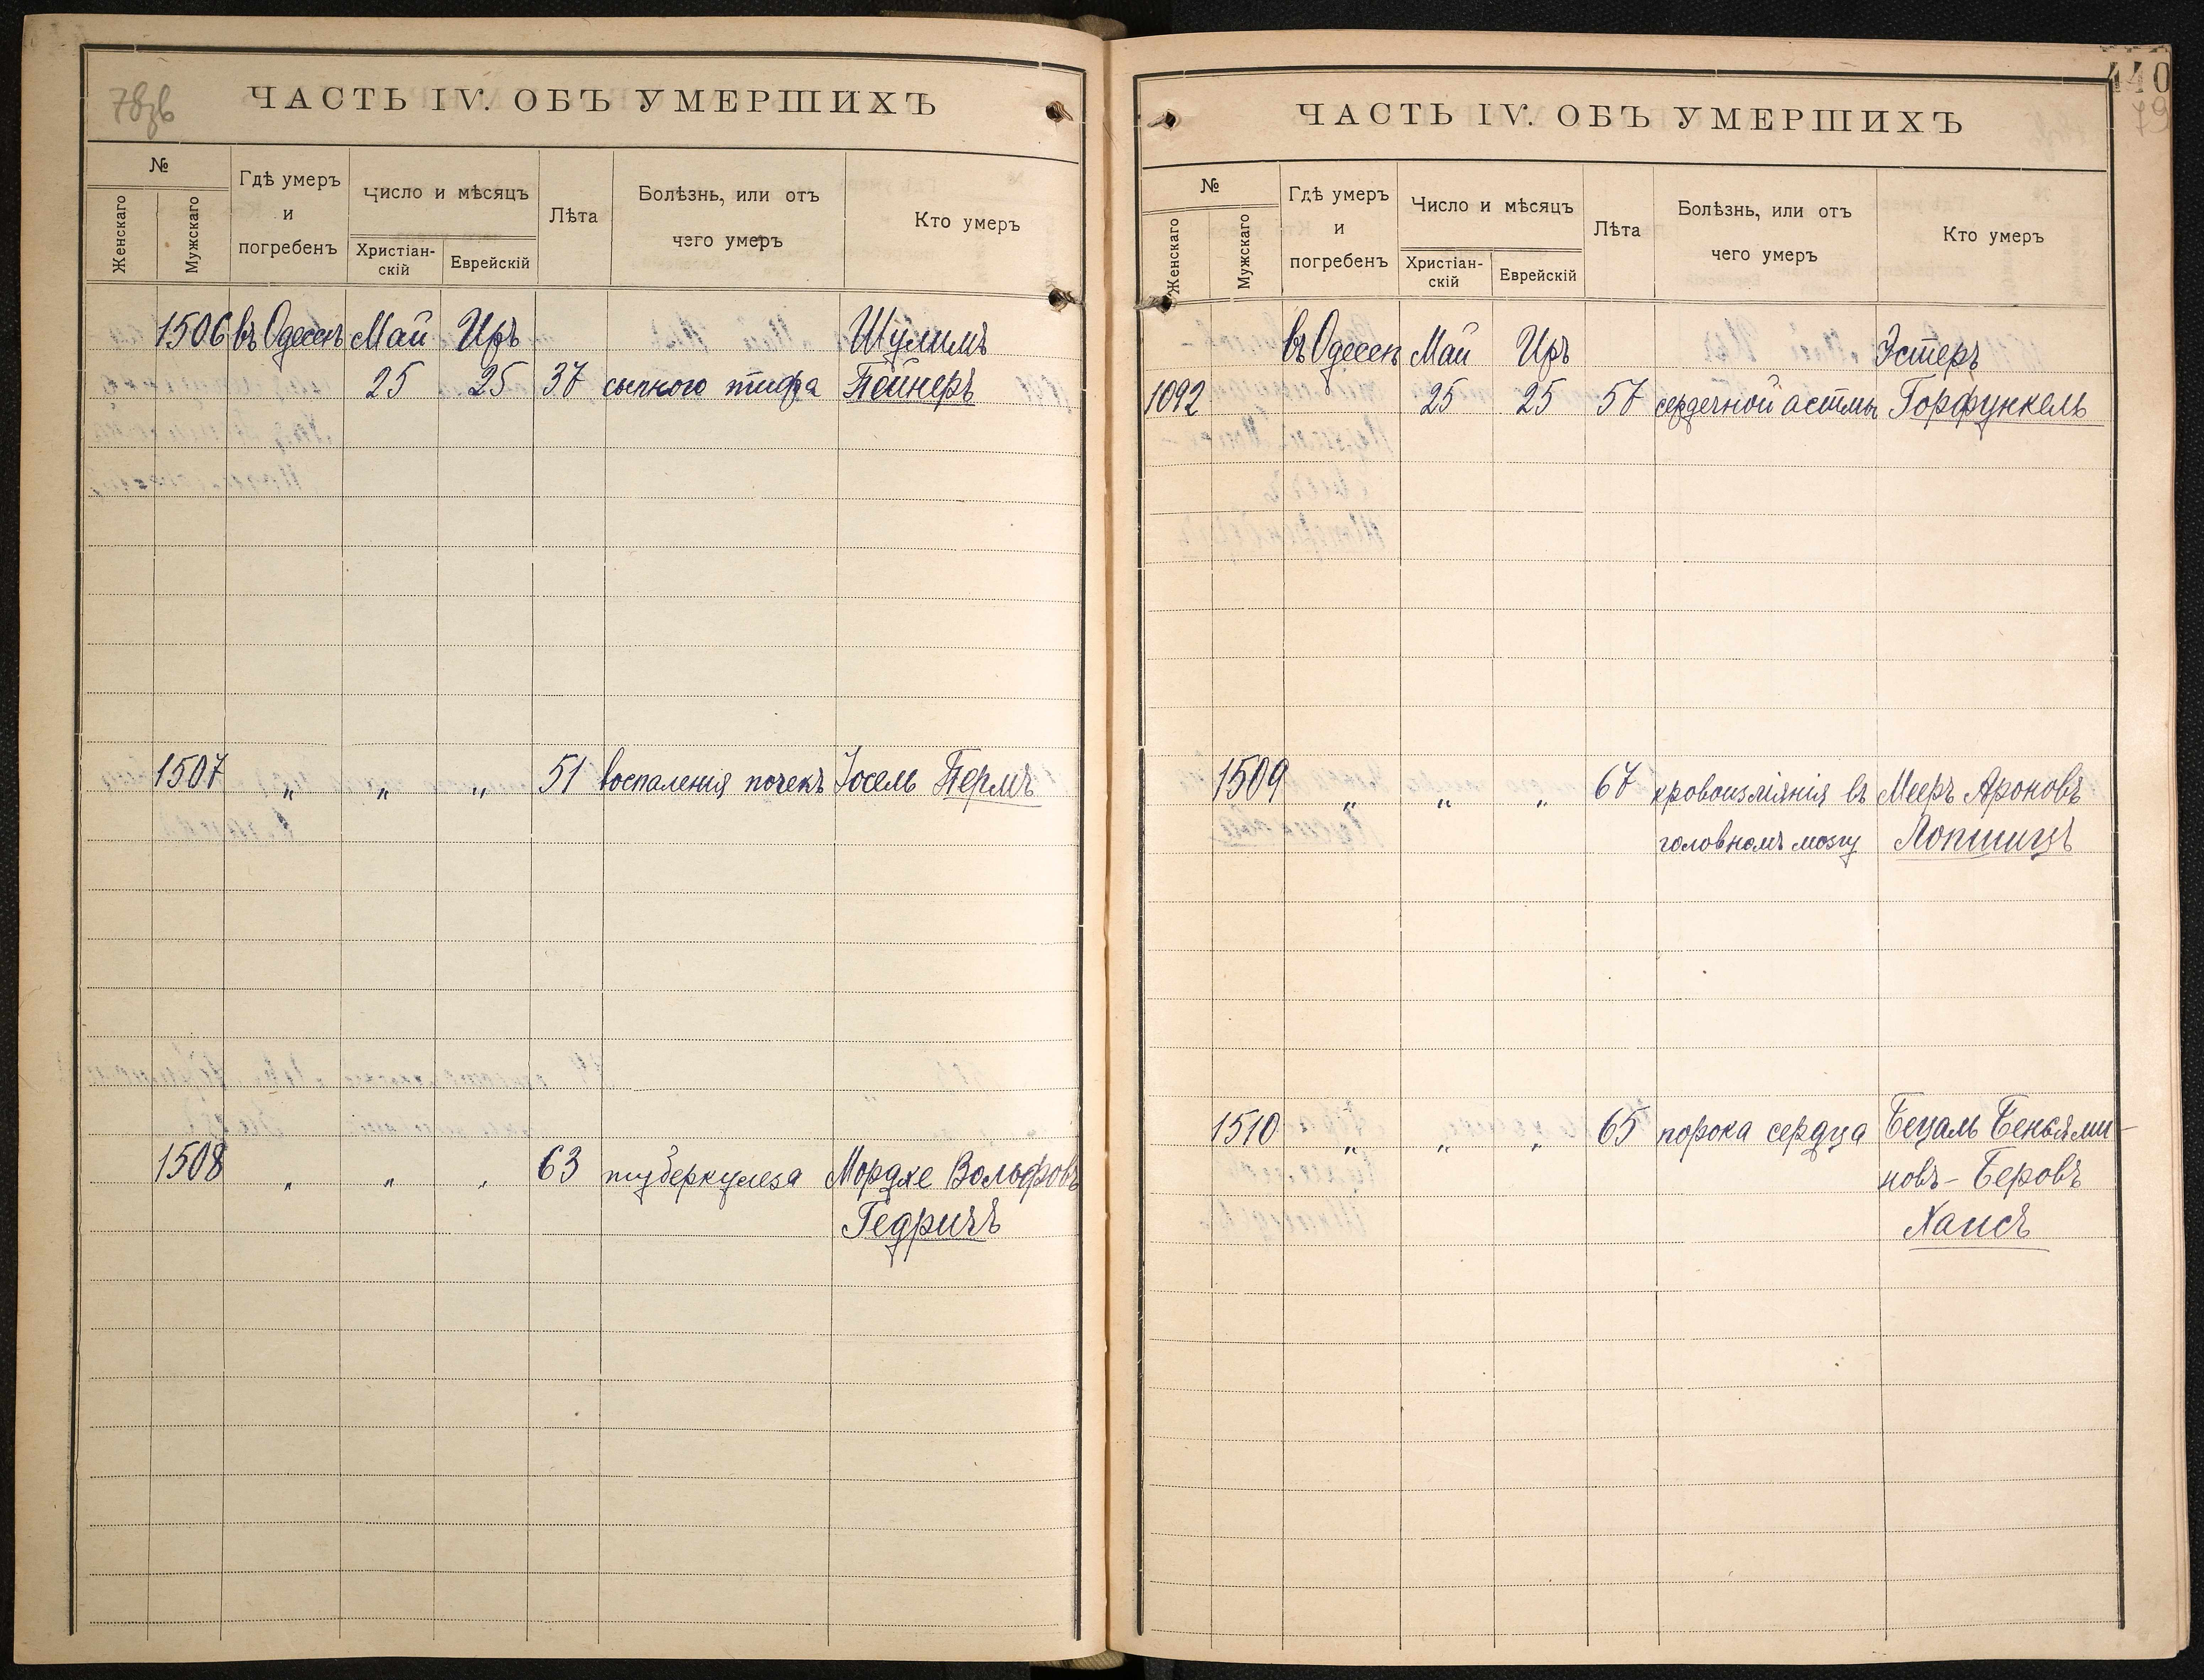 78об
ЧАСТЬ IV. ОБЪ УМЕРШИХЪ
№
Женскаго
Мужскаго
Гдѣ умеръ
и
погребенъ
Число и мѣсяцъ
Христіан-
скій
Еврейскій
Лѣта
Болѣзнь, или отъ
чего умеръ
Кто умеръ
1506 въ Одессѣ Май Иръ Шулимъ
25 25 37 сыпного тифа Пейнеръ
1507 " " " 51 воспаленія почекъ Іосель Пермъ
1508 " " " 63 туберкулеза Мордке Вольфовъ
Гедричъ
440
79
ЧАСТЬ IV. ОБЪ УМЕРШИХЪ
№
Женскаго
Мужскаго
Гдѣ умеръ
и
погребенъ
Число и мѣсяцъ
Христіан-
скій
Еврейскій
Лѣта
Болѣзнь, или отъ
чего умеръ
Кто умеръ
въ Одессѣ Май Иръ Эстеръ
1092 25 25 57 сердечной астмы Горфункель
1509 " " " 67 кровоизліянія въ Мееръ Ароновъ
головномъ мозгу Лопшицъ
1510 " " " 65 порока сердца Бецаль Беньями-
новъ-Беровъ
Хаисъ